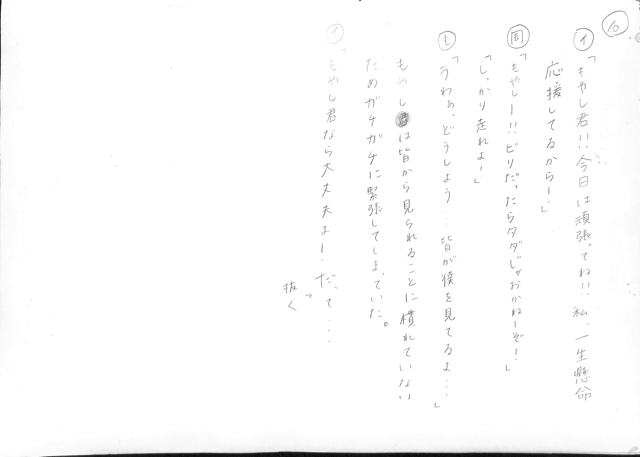 10
イ「もやし君!!今日は頑張ってね!!私、一生懸命
応援してるからー」
周「もやしー!!ビリだったらタダじゃおかねーぞー!」
「しっかり走れよー」
も「うわぁ、どうしよう...皆が僕を見てるよ...」
もやしは皆から見られることに慣れていない
ためガチガチに緊張してしまっていた。
イ「もやし君なら大丈夫よー!だって....
抜く